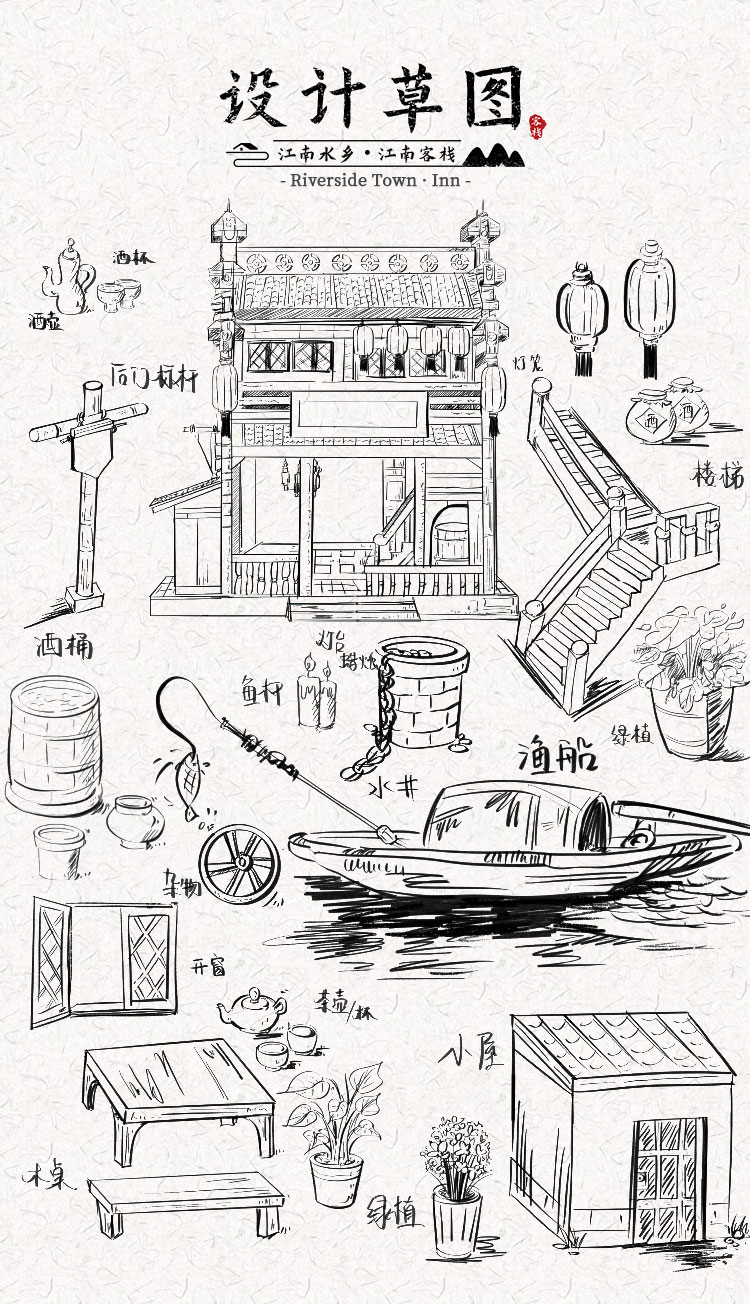 设计草图
客栈
江南水乡·江南客栈
- Riverside Town · Inn -
酒杯
酒壶
后门标杆
灯笼
酒
酒
楼梯
酒桶
灯台
蜡烛
鱼杆
水井
绿植
渔船
杂物
开窗
茶壶/杯
小屋
木桌
绿植